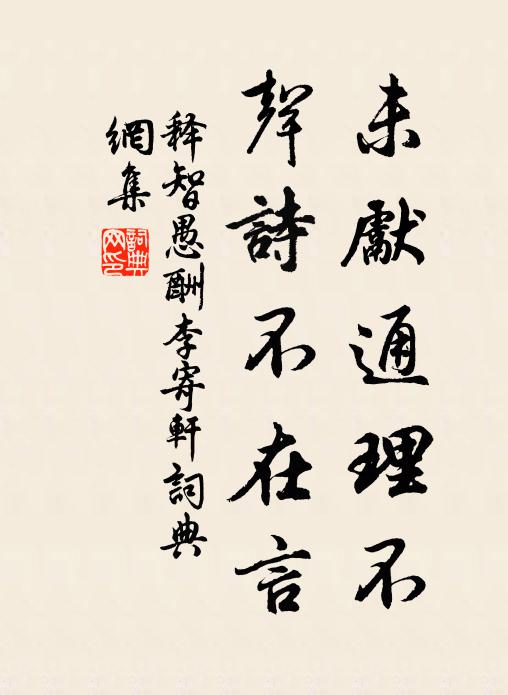 未獻通理不
聲詩不在言
释智愚酬李寄軒詞典
網集
詞典
网印